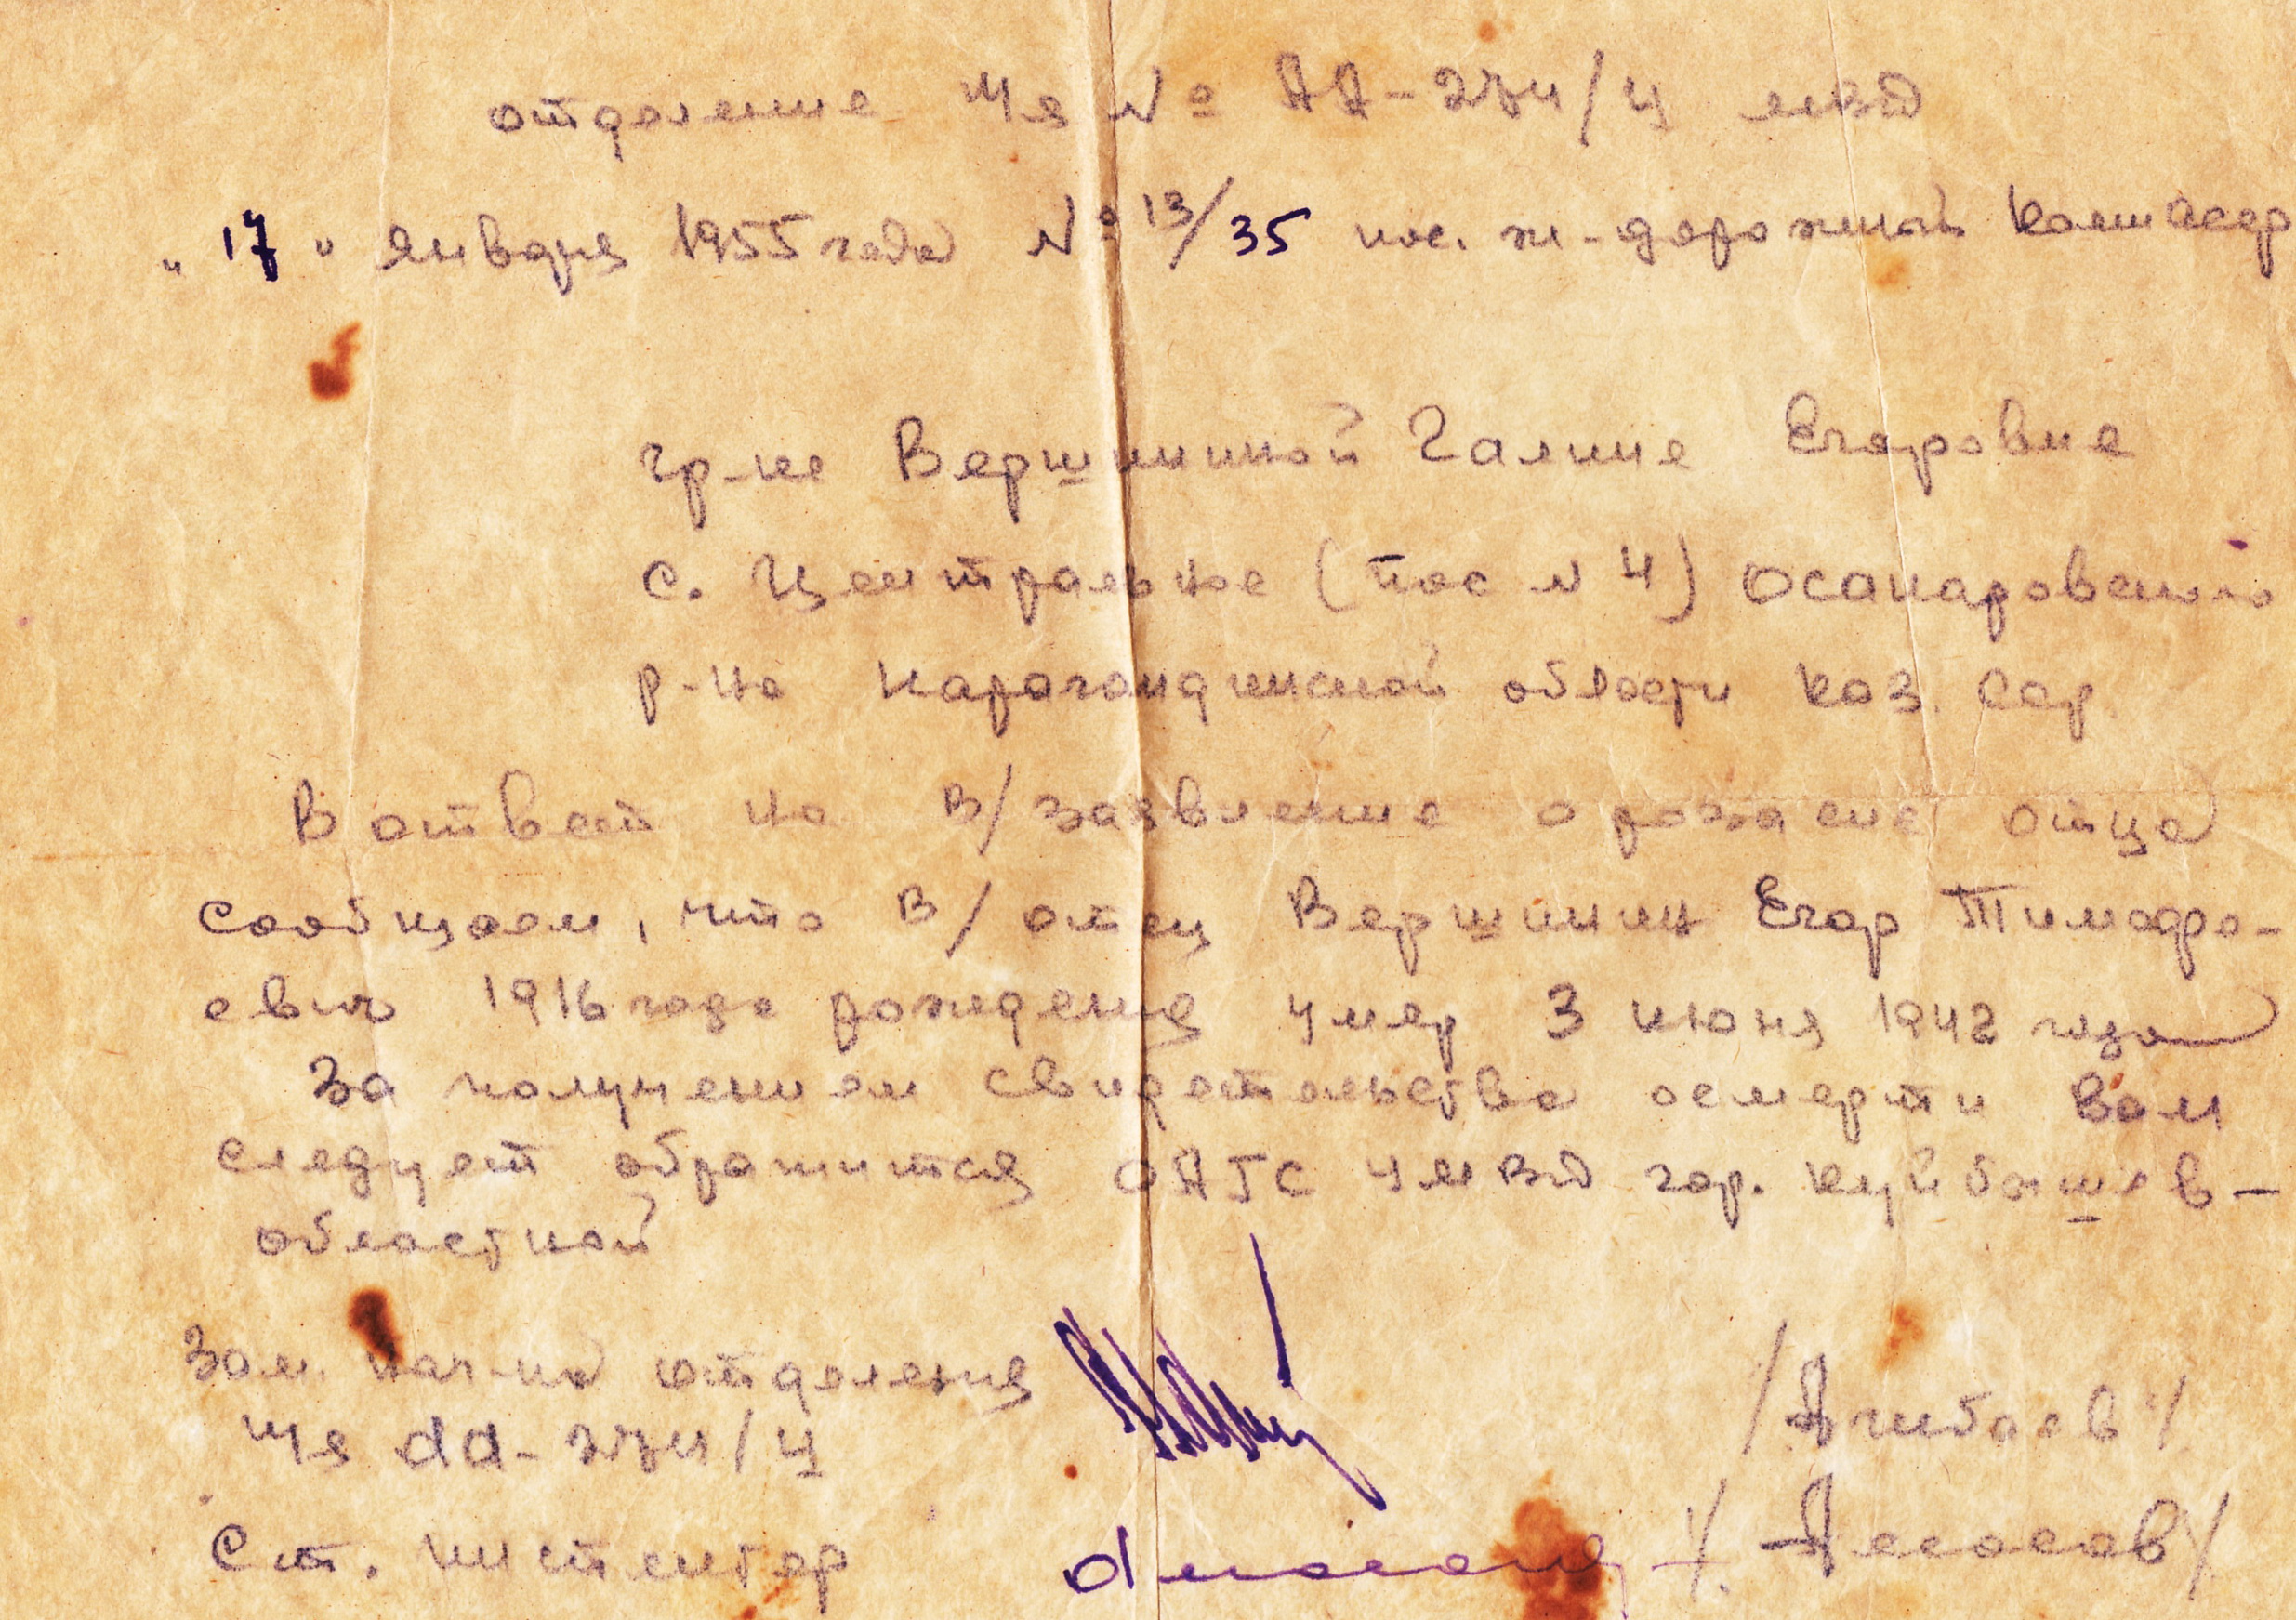 отделение П/я № АА-274/Ц МВД
"17" января 1955 года № 13/35 пос. ж-дорожный Коми АССР
гр-ке Вершининой Галине Егоровне
с. Центральное (пос N 4) Осакаровского
р-на Карагандинской области Каз. ССР.
В ответ на В/заявление о розыске отца
сообщаем, что В/ отец Вершинин Егор Тимофе-
евич 1916 года рождения умер 3 июня 1942 года
За получением свидетельства о смерти Вам
следует обратится ОАГС УМВД гор. Куйбышев-
областной
Зам. нач-ка отделения
П/я АА-274/Ц
Ст. инспектор